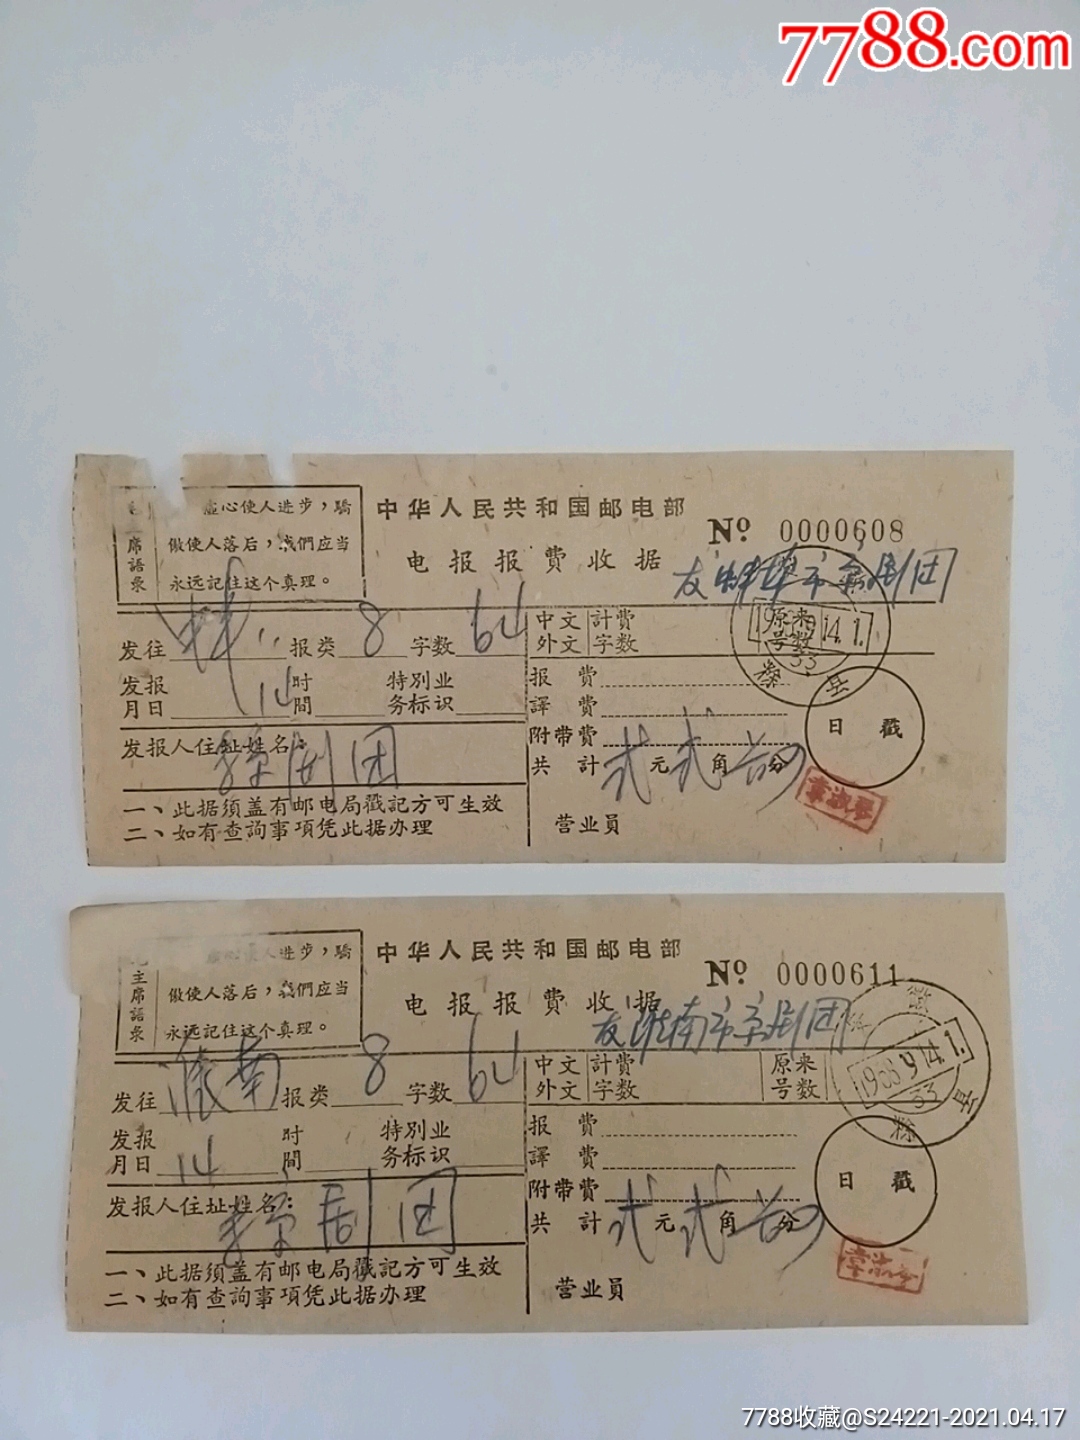 7788.com
主席語录
虛心使人进步，驕
傲使人落后，我們应当
永远記住这个真理。
中华人民共和国邮电部
电报报费收据
Nº 0000608
友蚌埠市京剧团
发往 蚌 报类 8 字数 64
中文 計費
外文 字数
原来
号数
发报
月日 14 时
間 特別业
务标识
报 費
譯 費
附带費
共 計 弍元弍角 分
发报人住址姓名：
京剧团
一、此据须盖有邮电局戳記方可生效
二、如有查詢事項凭此据办理
营业员
日 戳
主席語录
进步，驕
傲使人落后，我們应当
永远記住这个真理。
中华人民共和国邮电部
电报报費收据
Nº 0000611
友淮南市京剧团
发往 淮南 报类 8 字数 64
中文 計費
外文 字数
原来
号数
1968.9.14.1.
33
发报
月日 14 时
間 特別业
务标识
报 費
譯 費
附带費
共 計 弍元弍角 分
发报人住址姓名：
京剧团
一、此据须盖有邮电局戳記方可生效
二、如有查詢事項凭此据办理
营业员
日 戳
7788收藏@S24221-2021.04.17